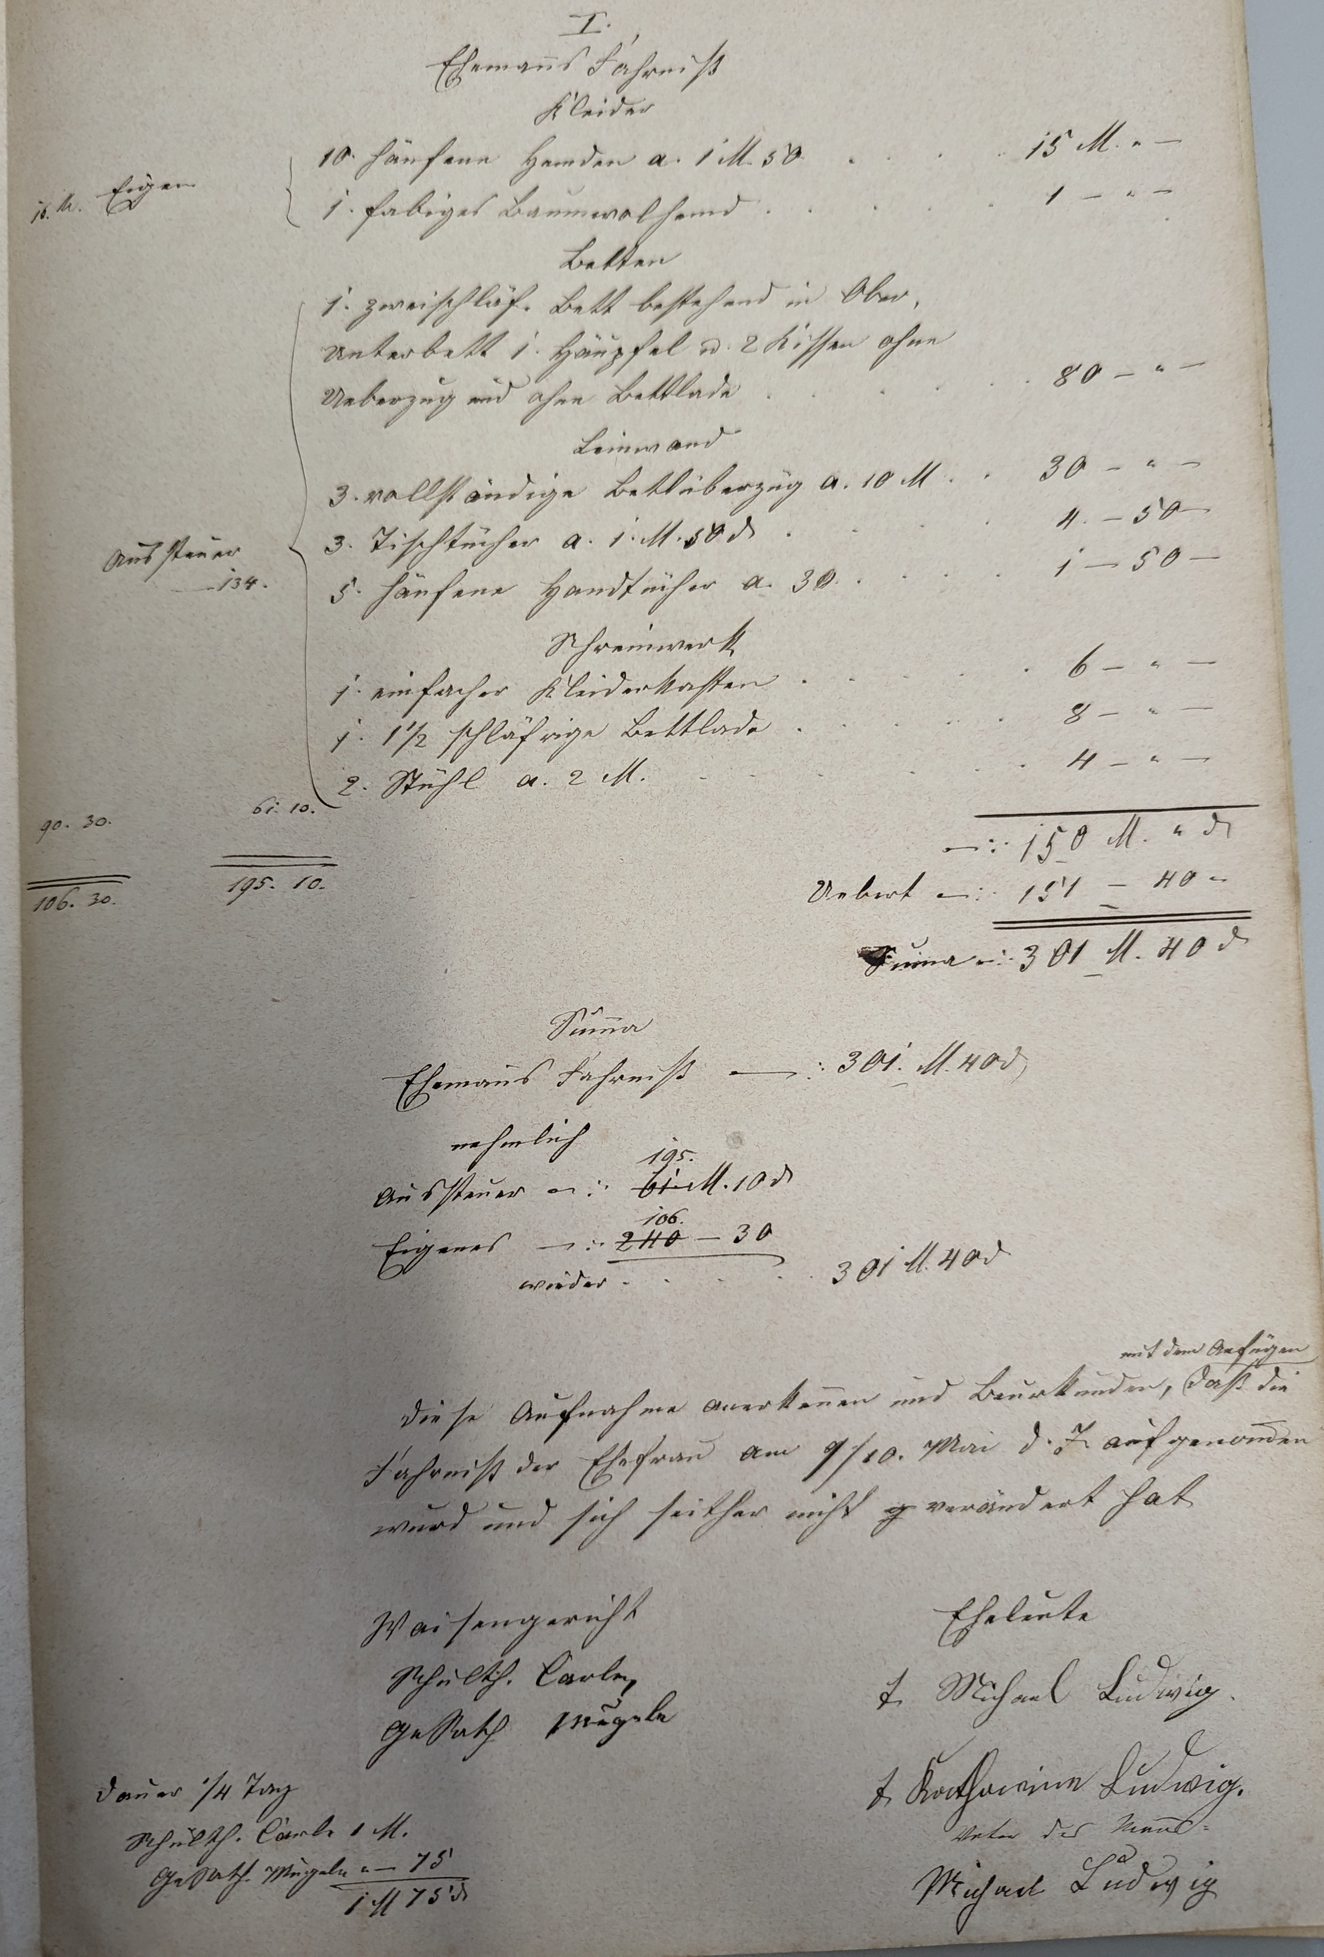 I.
Ehemanns Fahrniß
Kleider
10. hänfene Hemden a. 1 M. 50 . . . . 15 M. " —
16. M. Eigen
1. farbiges Baumwolhemd . . . . 1 — " —
Betten
1. zweischläf. Bett bestehend in Ober,
Unterbett 1. Häupfel u. 2 Kissen ohne
Ueberzug und ohne Bettlade . . . . 80 — " —
Leinwand
3. vollständige Bettüberzüg a. 10 M . . 30 — " —
3. Tischtücher a. 1. M. 50 d . . . . 4. — 50 —
Aussteuer
— 134.
5. hänfene Handtücher a. 30 . . . . 1 — 50 —
Schreinwerk
1. einfacher Kleiderkasten . . . . 6 — " —
1. 1 1/2 schläfrige Bettlade . . . . 8 — " —
2. Stühl a. 2 M. . . . . 4 — " —
90. 30. 61. 10.
—: 150 M. " d
106. 30. 195. 10.
Uebert —: 151 — 40 —
Suma —: 301 M. 40 d
Suma
Ehemans Fahrniß —: 301. M. 40 d
nehmlich
195.
Aussteuer —: 61 M. 10 d
106.
Eigenes —: 240 — 30
wieder . . . . 301 M. 40 d
mit dem Anfügen
Diese Aufnahme anerkennen und Beurkunden, daß die
Fahrniß der Ehefrau am 9/10. Mai d. J. aufgenomen
wurd und sich seither nicht verändert hat
Waisengericht
Schulth. Carle,
GeRath Mügele
Eheleute
t. Michael Ludwig.
t. Katharina Ludwig.
Vater des Manns:
Michael Ludwig
Dauer 1/4 Tag
Schulth. Carle 1 M.
GeRath. Mügele " — 75
1 M 75 d